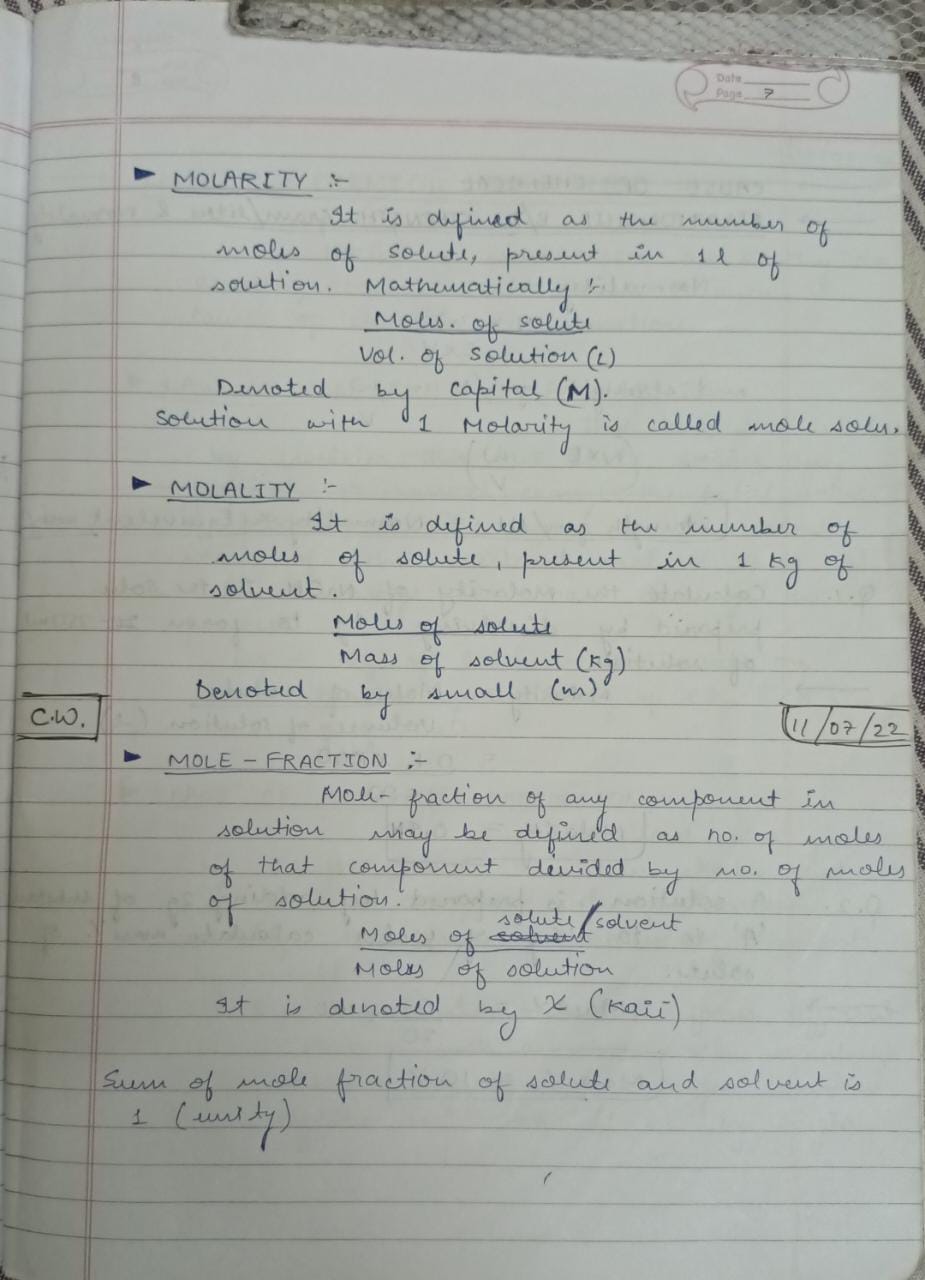 Date
Page 7
► MOLARITY :-
It is defined as the number of
moles of solute, present in 1 l of
solution. Mathematically :-
Moles. of solute
Vol. of solution (L)
Denoted by capital (M).
Solution with 1 Molarity is called mole solu.
► MOLALITY :-
It is defined as the number of
moles of solute, present in 1 kg of
solvent.
Moles of solute
Mass of solvent (kg)
Denoted by small (m)
C.W.
11/07/22
► MOLE - FRACTION :-
Mole- fraction of any component in
solution may be defined as no. of moles
of that component devided by no. of moles
of solution.
solute/solvent
Moles of solvent
Moles of solution
It is denoted by X (Kaii)
Sum of mole fraction of solute and solvent is
1 (unity)